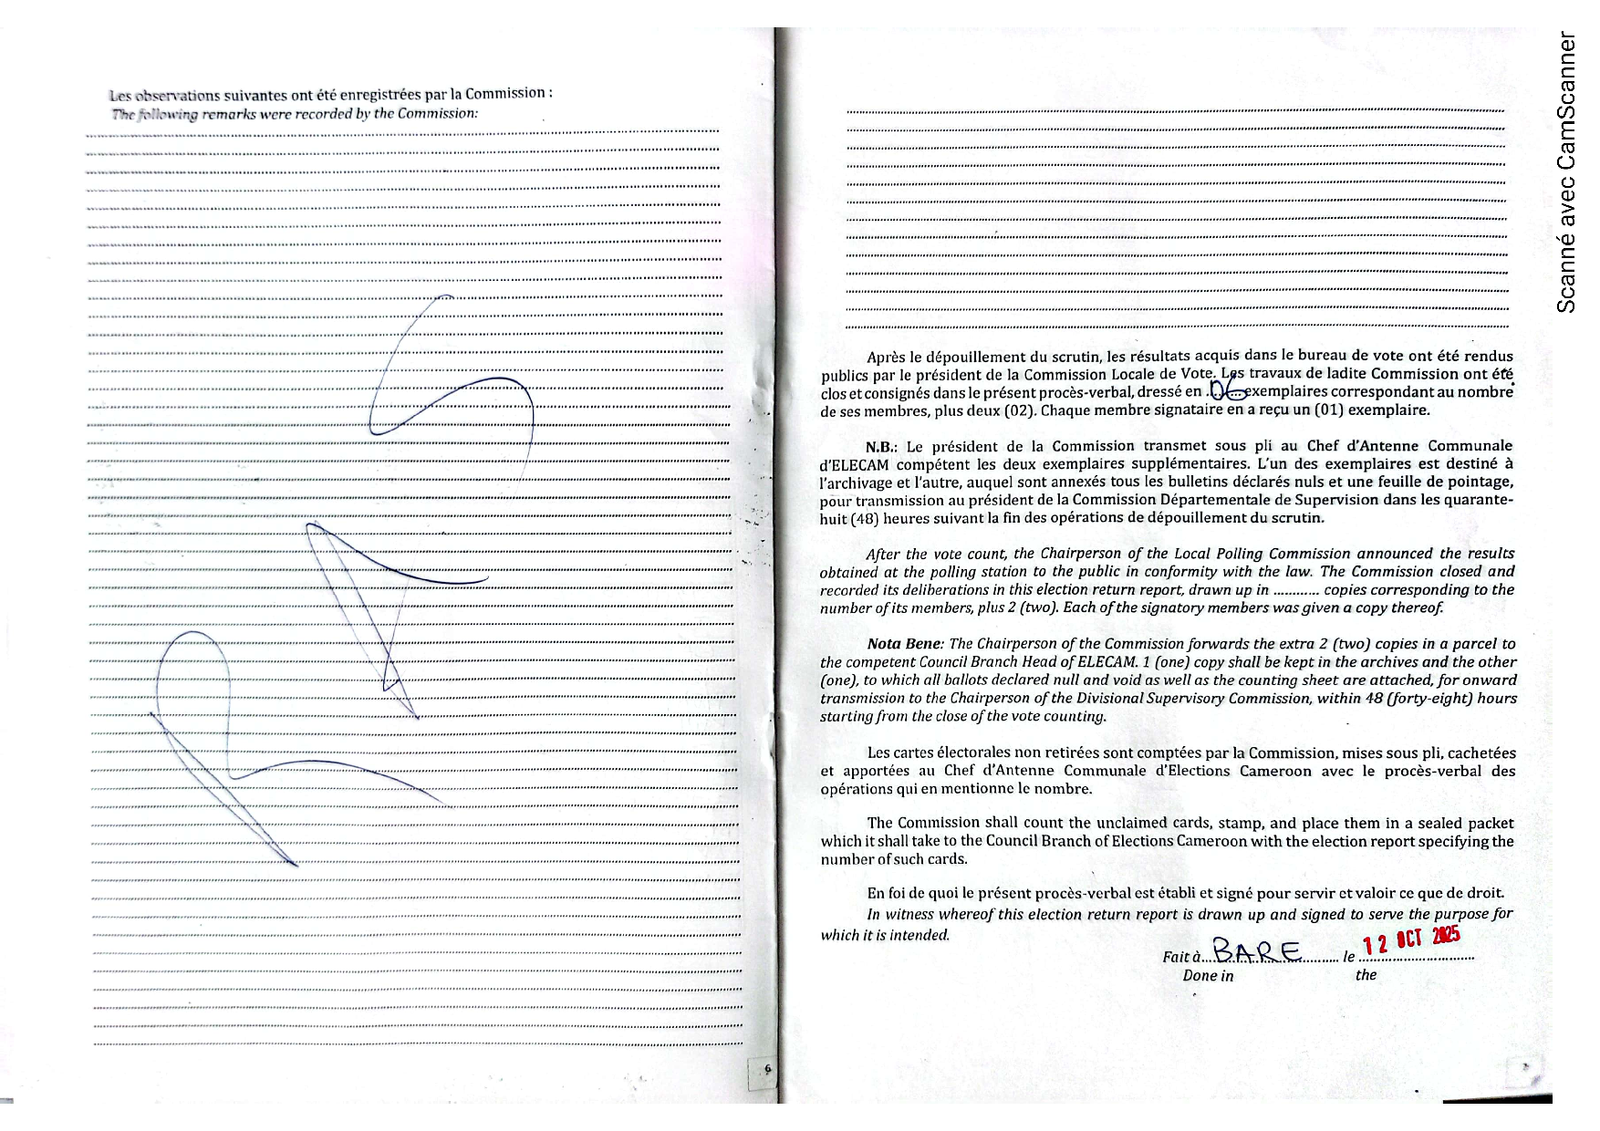 Les observations suivantes ont été enregistrées par la Commission :
The following remarks were recorded by the Commission:
RAS
6
Après le dépouillement du scrutin, les résultats acquis dans le bureau de vote ont été rendus
publics par le président de la Commission Locale de Vote. Les travaux de ladite Commission ont été
clos et consignés dans le présent procès-verbal, dressé en 06 exemplaires correspondant au nombre
de ses membres, plus deux (02). Chaque membre signataire en a reçu un (01) exemplaire.
N.B.: Le président de la Commission transmet sous pli au Chef d'Antenne Communale
d'ELECAM compétent les deux exemplaires supplémentaires. L'un des exemplaires est destiné à
l'archivage et l'autre, auquel sont annexés tous les bulletins déclarés nuls et une feuille de pointage,
pour transmission au président de la Commission Départementale de Supervision dans les quarante-
huit (48) heures suivant la fin des opérations de dépouillement du scrutin.
After the vote count, the Chairperson of the Local Polling Commission announced the results
obtained at the polling station to the public in conformity with the law. The Commission closed and
recorded its deliberations in this election return report, drawn up in ............ copies corresponding to the
number of its members, plus 2 (two). Each of the signatory members was given a copy thereof.
Nota Bene: The Chairperson of the Commission forwards the extra 2 (two) copies in a parcel to
the competent Council Branch Head of ELECAM. 1 (one) copy shall be kept in the archives and the other
(one), to which all ballots declared null and void as well as the counting sheet are attached, for onward
transmission to the Chairperson of the Divisional Supervisory Commission, within 48 (forty-eight) hours
starting from the close of the vote counting.
Les cartes électorales non retirées sont comptées par la Commission, mises sous pli, cachetées
et apportées au Chef d'Antenne Communale d'Elections Cameroon avec le procès-verbal des
opérations qui en mentionne le nombre.
The Commission shall count the unclaimed cards, stamp, and place them in a sealed packet
which it shall take to the Council Branch of Elections Cameroon with the election report specifying the
number of such cards.
En foi de quoi le présent procès-verbal est établi et signé pour servir et valoir ce que de droit.
In witness whereof this election return report is drawn up and signed to serve the purpose for
which it is intended.
Fait à BARE le 12 OCT 2025
Done in the
Scanné avec CamScanner